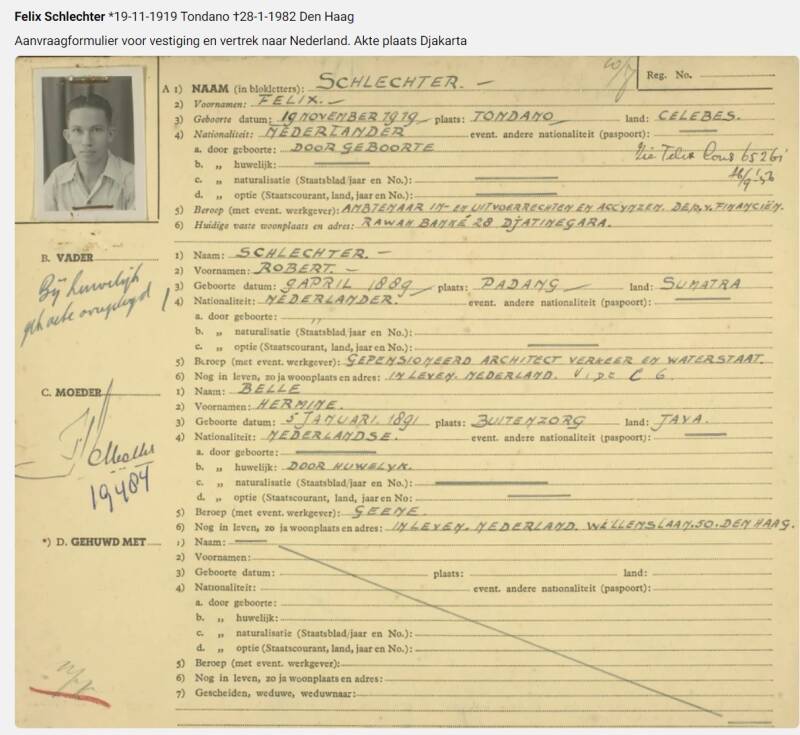 Felix Schlechter *19-11-1919 Tondano †28-1-1982 Den Haag
Aanvraagformulier voor vestiging en vertrek naar Nederland. Akte plaats Djakarta
Reg. No.
A 1) NAAM (in blokletters): SCHLECHTER. –
2) Voornamen: FELIX. –
3) Geboorte datum: 19 NOVEMBER 1919 plaats: TONDANO land: CELEBES.
4) Nationaliteit: NEDERLANDER event. andere nationaliteit (paspoort):
a. door geboorte: DOOR GEBOORTE
b. „ huwelijk:
c. „ naturalisatie (Staatsblad/jaar en No.):
d. „ optie (Staatscourant, land, jaar en No.):
5) Beroep (met event. werkgever): AMBTENAAR IN- en UITVOERRECHTEN EN ACCYNZEN. DEP. v. FINANCIËN.
6) Huidige vaste woonplaats en adres: RAWAH BANKÉ 28 DJATINEGARA.
B. VADER
Bij huwelijk
1) Naam: SCHLECHTER. –
2) Voornamen: ROBERT. –
3) Geboorte datum: 9 APRIL 1889 plaats: PADANG land: SUMATRA
4) Nationaliteit: NEDERLANDER. event. andere nationaliteit (paspoort):
a. door geboorte: „
b. „ naturalisatie (Staatsblad/jaar en No.):
c. „ optie (Staatscourant, land, jaar en No.):
5) Beroep (met event. werkgever): GEPENSIONEERD ARCHITECT VERKEER EN WATERSTAAT.
6) Nog in leven, zo ja woonplaats en adres: IN LEVEN. NEDERLAND. C 6.
C. MOEDER
19484
1) Naam: BELLE
2) Voornamen: HERMINE.
3) Geboorte datum: 5 JANUARI. 1891 plaats: BUITENZORG land: JAVA.
4) Nationaliteit: NEDERLANDSE. event. andere nationaliteit (paspoort):
a. door geboorte:
b. „ huwelijk: DOOR HUWELYK.
c. „ naturalisatie (Staatsblad/jaar en No.):
d. „ optie (Staatscourant, land, jaar en No:
5) Beroep (met event. werkgever): GEENE.
6) Nog in leven, zo ja woonplaats en adres: IN LEVEN. NEDERLAND. WILLENSLAAN. 50. DEN HAAG.
*) D. GEHUWD MET
1) Naam:
2) Voornamen:
3) Geboorte datum: plaats: land:
4) Nationaliteit: event. andere nationaliteit (paspoort):
a. door geboorte:
b. „ huwelijk:
c. „ naturalisatie (Staatsblad/jaar en No.):
d. „ optie (Staatscourant, land, jaar en No.):
5) Beroep (met event. werkgever):
6) Nog in leven, zo ja woonplaats en adres:
7) Gescheiden, weduwe, weduwnaar: